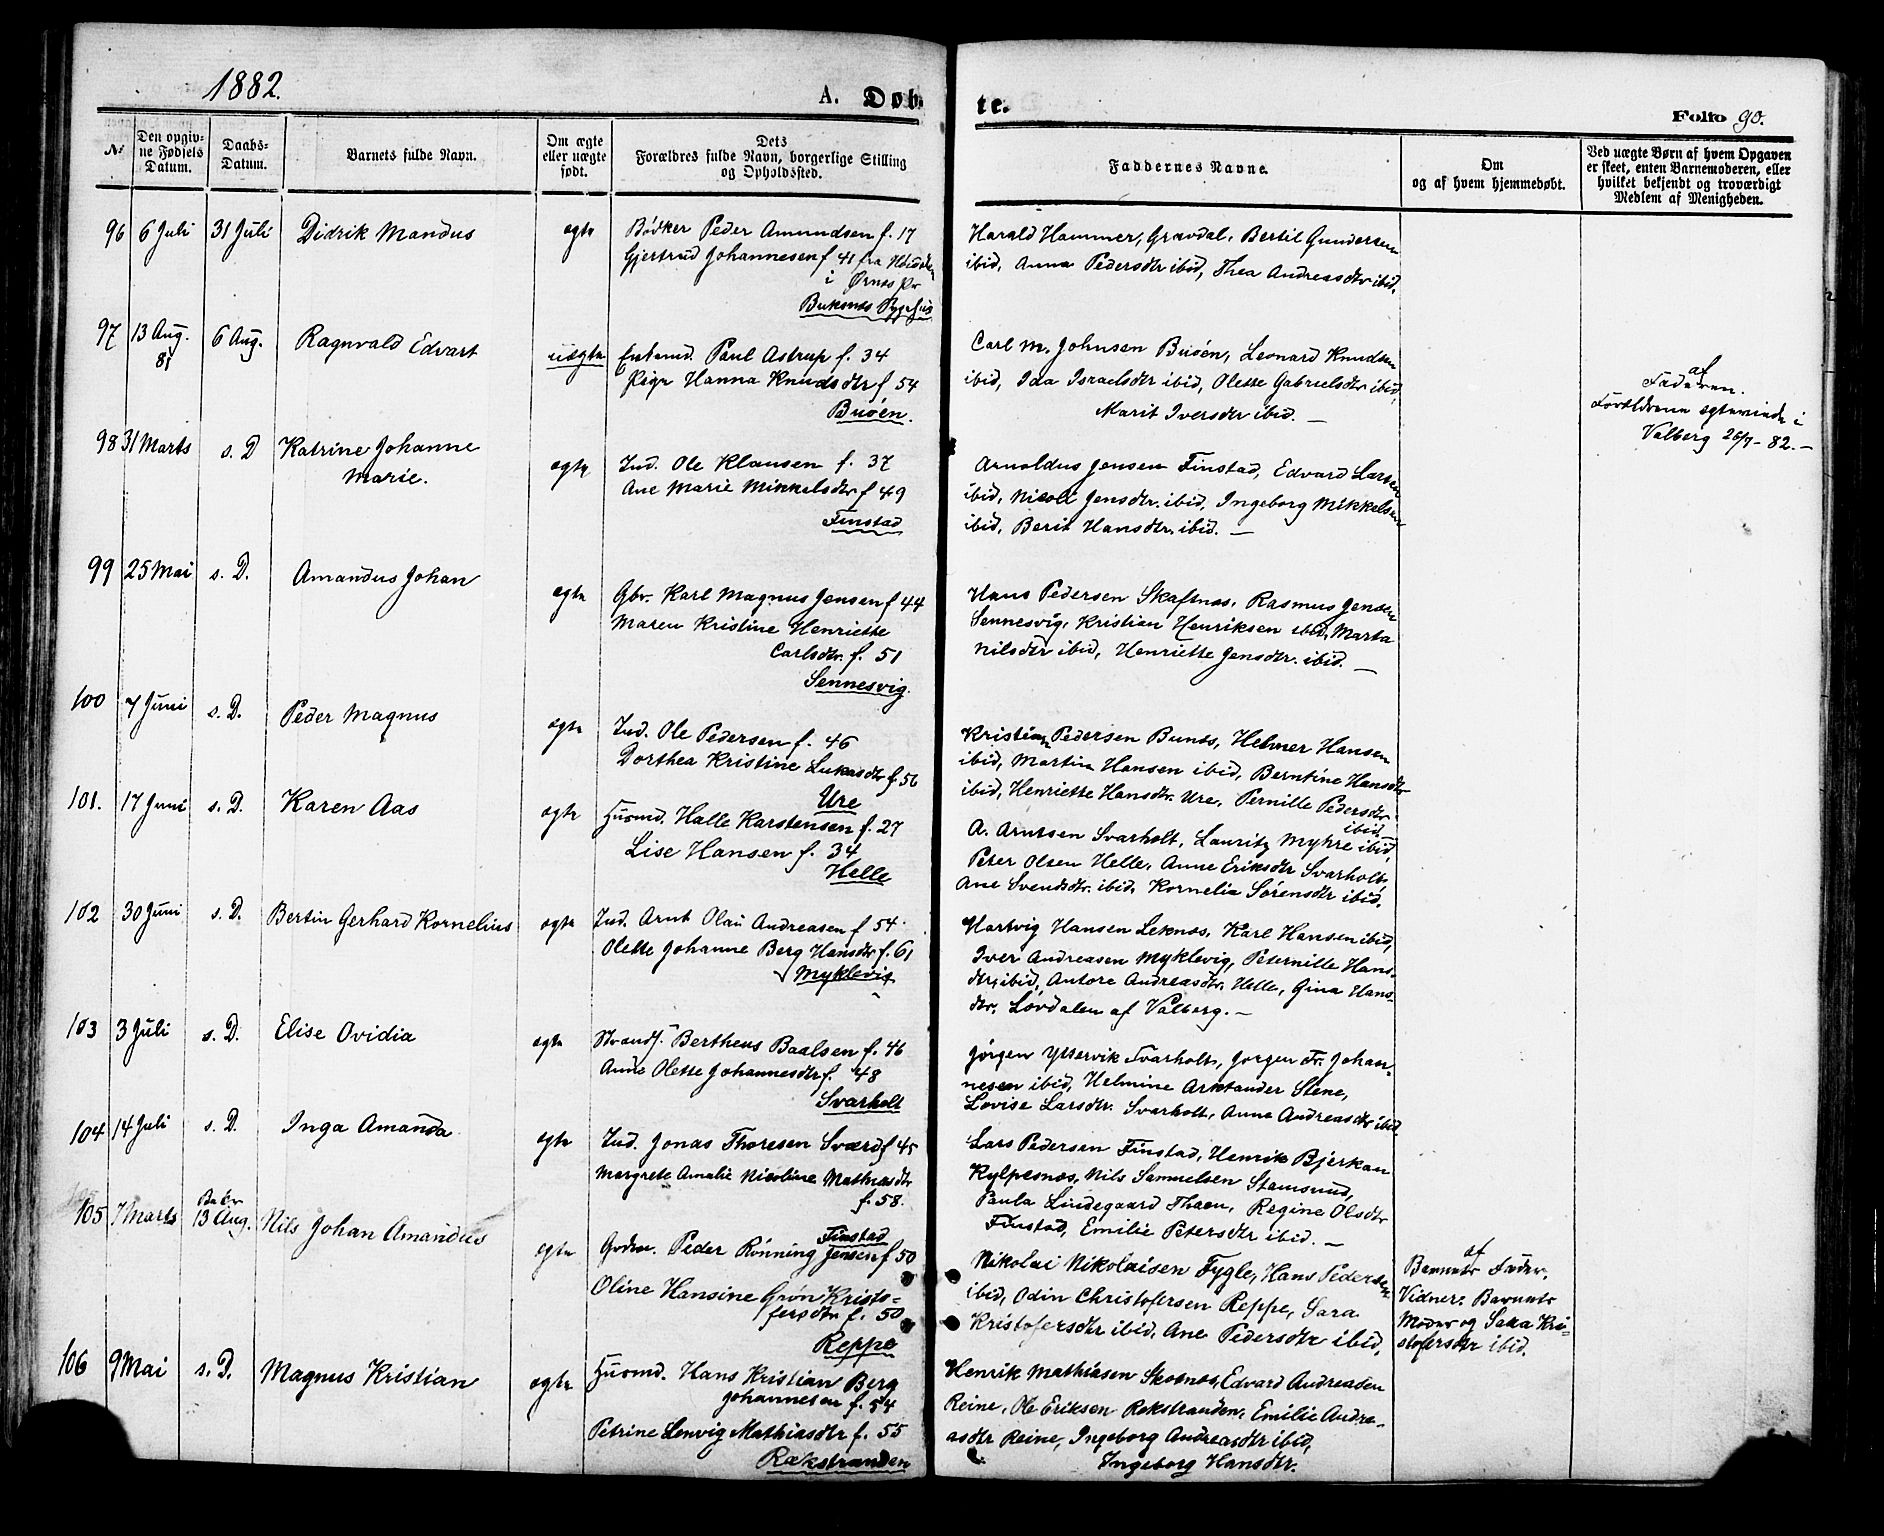 1882.
A. Døb
te.
Folio 90.
No
Den opgiv-
ne Fødsels
Datum.
Daabs-
Datum.
Barnets fulde Navn.
Om ægte
eller uægte
født.
Dets
Forældres fulde Navn, borgerlige Stilling
og Opholdssted.
Faddernes Navne.
Om
og af hvem hjemmedøbt.
Ved uægte Børn af hvem Opgaven
er skeet, enten Barnemoderen, eller
hvilket bekjendt og troværdigt
Medlem af Menigheden.
96 6 Juli 31 Juli Didrik Mandus ægte
Bødker Peder Amundsen f. 17
Gjertrud Johannesen f 41 fra
i Ørnes Pr
Buksnes Sygehus
Harald Hammer, Gravdal, Bertil Gundersen
ibid, Anna Pedersdtr ibid, Thea Andreasdtr ibid.
97 13 Aug. 81 6 Aug. Ragnvald Edvart uægte
Enkemd. Paul Astrup f. 34
Pige Hanna Knudsdtr f 54
Busøen.
Carl M. Johnsen Busøen, Leonard Knudsen
ibid, Ida Israelsdtr ibid, Olette Gabrielsdtr ibid,
Marit Iversdtr ibid. —
af
Faderen.
Forældrene ægteviede i
Valberg 26/7 - 82. —
98 31 Marts s. D Katrine Johanne
Marie. ægte
Ind. Ole Klausen f. 37
Ane Marie Mikkelsdtr f 49
Finstad
Arnoldus Jensen Finstad, Edvard Larsen
ibid, Nicoli Jensdtr. ibid, Ingeborg Mikkelsen
ibid, Berit Hansdtr. ibid. —
99 25 Mai s. D. Amandus Johan ægte
Gbr. Karl Magnus Jensen f 44
Maren Kristine Henriette
Carlsdtr. f. 51
Sennesvig.
Hans Pedersen Skaftnes, Rasmus Jensen
Sennesvig, Kristian Henriksen ibid, Marta
Nilsdtr ibid, Henriette Jensdtr. ibid. —
100 7 Juni s. D. Peder Magnus ægte
Ind. Ole Pedersen f. 46
Dorthea Kristine Lukasdtr f. 56
Ure
Kristian Pedersen Bunes, Helmer Hansen
ibid, Martin Hansen ibid, Berntine Hansdtr
ibid, Henriette Hansdtr. Ure, Pernille Pedersdtr
ibid.
101. 17 Juni s. D. Karen Aas ægte
Husmd. Halle Karstensen f. 27
Lise Hansen f. 34
Helle
A. Arntsen Svarholt, Lauritz Myhre ibid,
Peter Olsen Helle, Anne Eriksdtr Svarholt,
Ane Svendsdtr. ibid, Kornelia Sørensdtr ibid.
102 30 Juni s. D. Bertin Gerhard Kornelius ægte
Ind. Arnt Olai Andreasen f 54.
Olette Johanne Berg Hansdtr f. 61
Myklevig
Hartvig Hansen Leknes, Karl Hansen ibid,
Iver Andreasen Myklevig, Peternille Hans-
dtr, ibid, Antore Andreasdtr. Helle, Gina Hans-
dtr. Løvdalen af Valberg. —
103 3 Juli s. D. Elise Ovidia ægte
Strands. Bertheus Baalsen f. 46
Anne Olette Johannesdtr f. 48
Svarholt
Jørgen Yttervik Svarholt, Jørgen Fr. Johan-
nesen ibid, Helmine Arktander Stene,
Lovise Larsdtr. Svarholt, Anne Andreasdtr ibid.
104 14 Juli s. D. Inga Amanda ægte
Ind. Jonas Thoresen Sværd f 45
Margrete Amalie Nicoline Mathiasdtr
f. 58.
Finstad
Lars Pedersen Finstad, Henrik Bjerkan
Kylpesnes, Nils Samuelsen Stamsund,
Paula Lindegaard Thaen, Regine Olsdtr
Finstad, Emilie Petersdtr ibid. —
105 7 Marts 13 Aug. Nils Johan Amandus ægte
Gbr. Peder Rønning Jensen f 50
Oline Hansine Grøn Kristo-
fersdtr. f. 50
Reppe
Nikolai Nikolaisen Fygle, Hans Pedersen
ibid, Odin Christofersen Reppe, Sara
Kristofersdtr ibid, Ane Pedersdtr ibid.
af
Barnets Fader.
Vidner: Barnets
Moder og Sara Kri-
stofersdtr ibid.
106 9 Mai s. D. Magnus Kristian ægte
Husmd. Hans Kristian Berg
Johannesen f. 54
Petrine Lenvig Mathiasdtr f. 55
Rækstranden
Henrik Mathiasen Skotnes, Edvard Andreasen
Reine, Ole Eriksen Rekstranden, Emilie Andre-
asdtr Reine, Ingeborg Andreasdtr ibid,
Ingeborg Hansdtr.